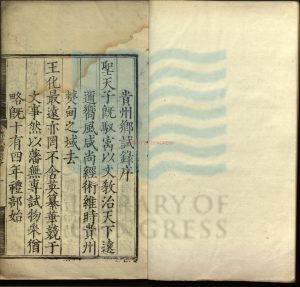 貴州鄉試錄序
聖天子既馭㝢以文教治天下遠
邇嚮風咸尚經術維時貴州
僰甸之域去
王化最遠亦罔不含英纂華競于
文事然以藩無專試物采猶
略既十有四年禮部始
LIBRARY OF
CONGRESS